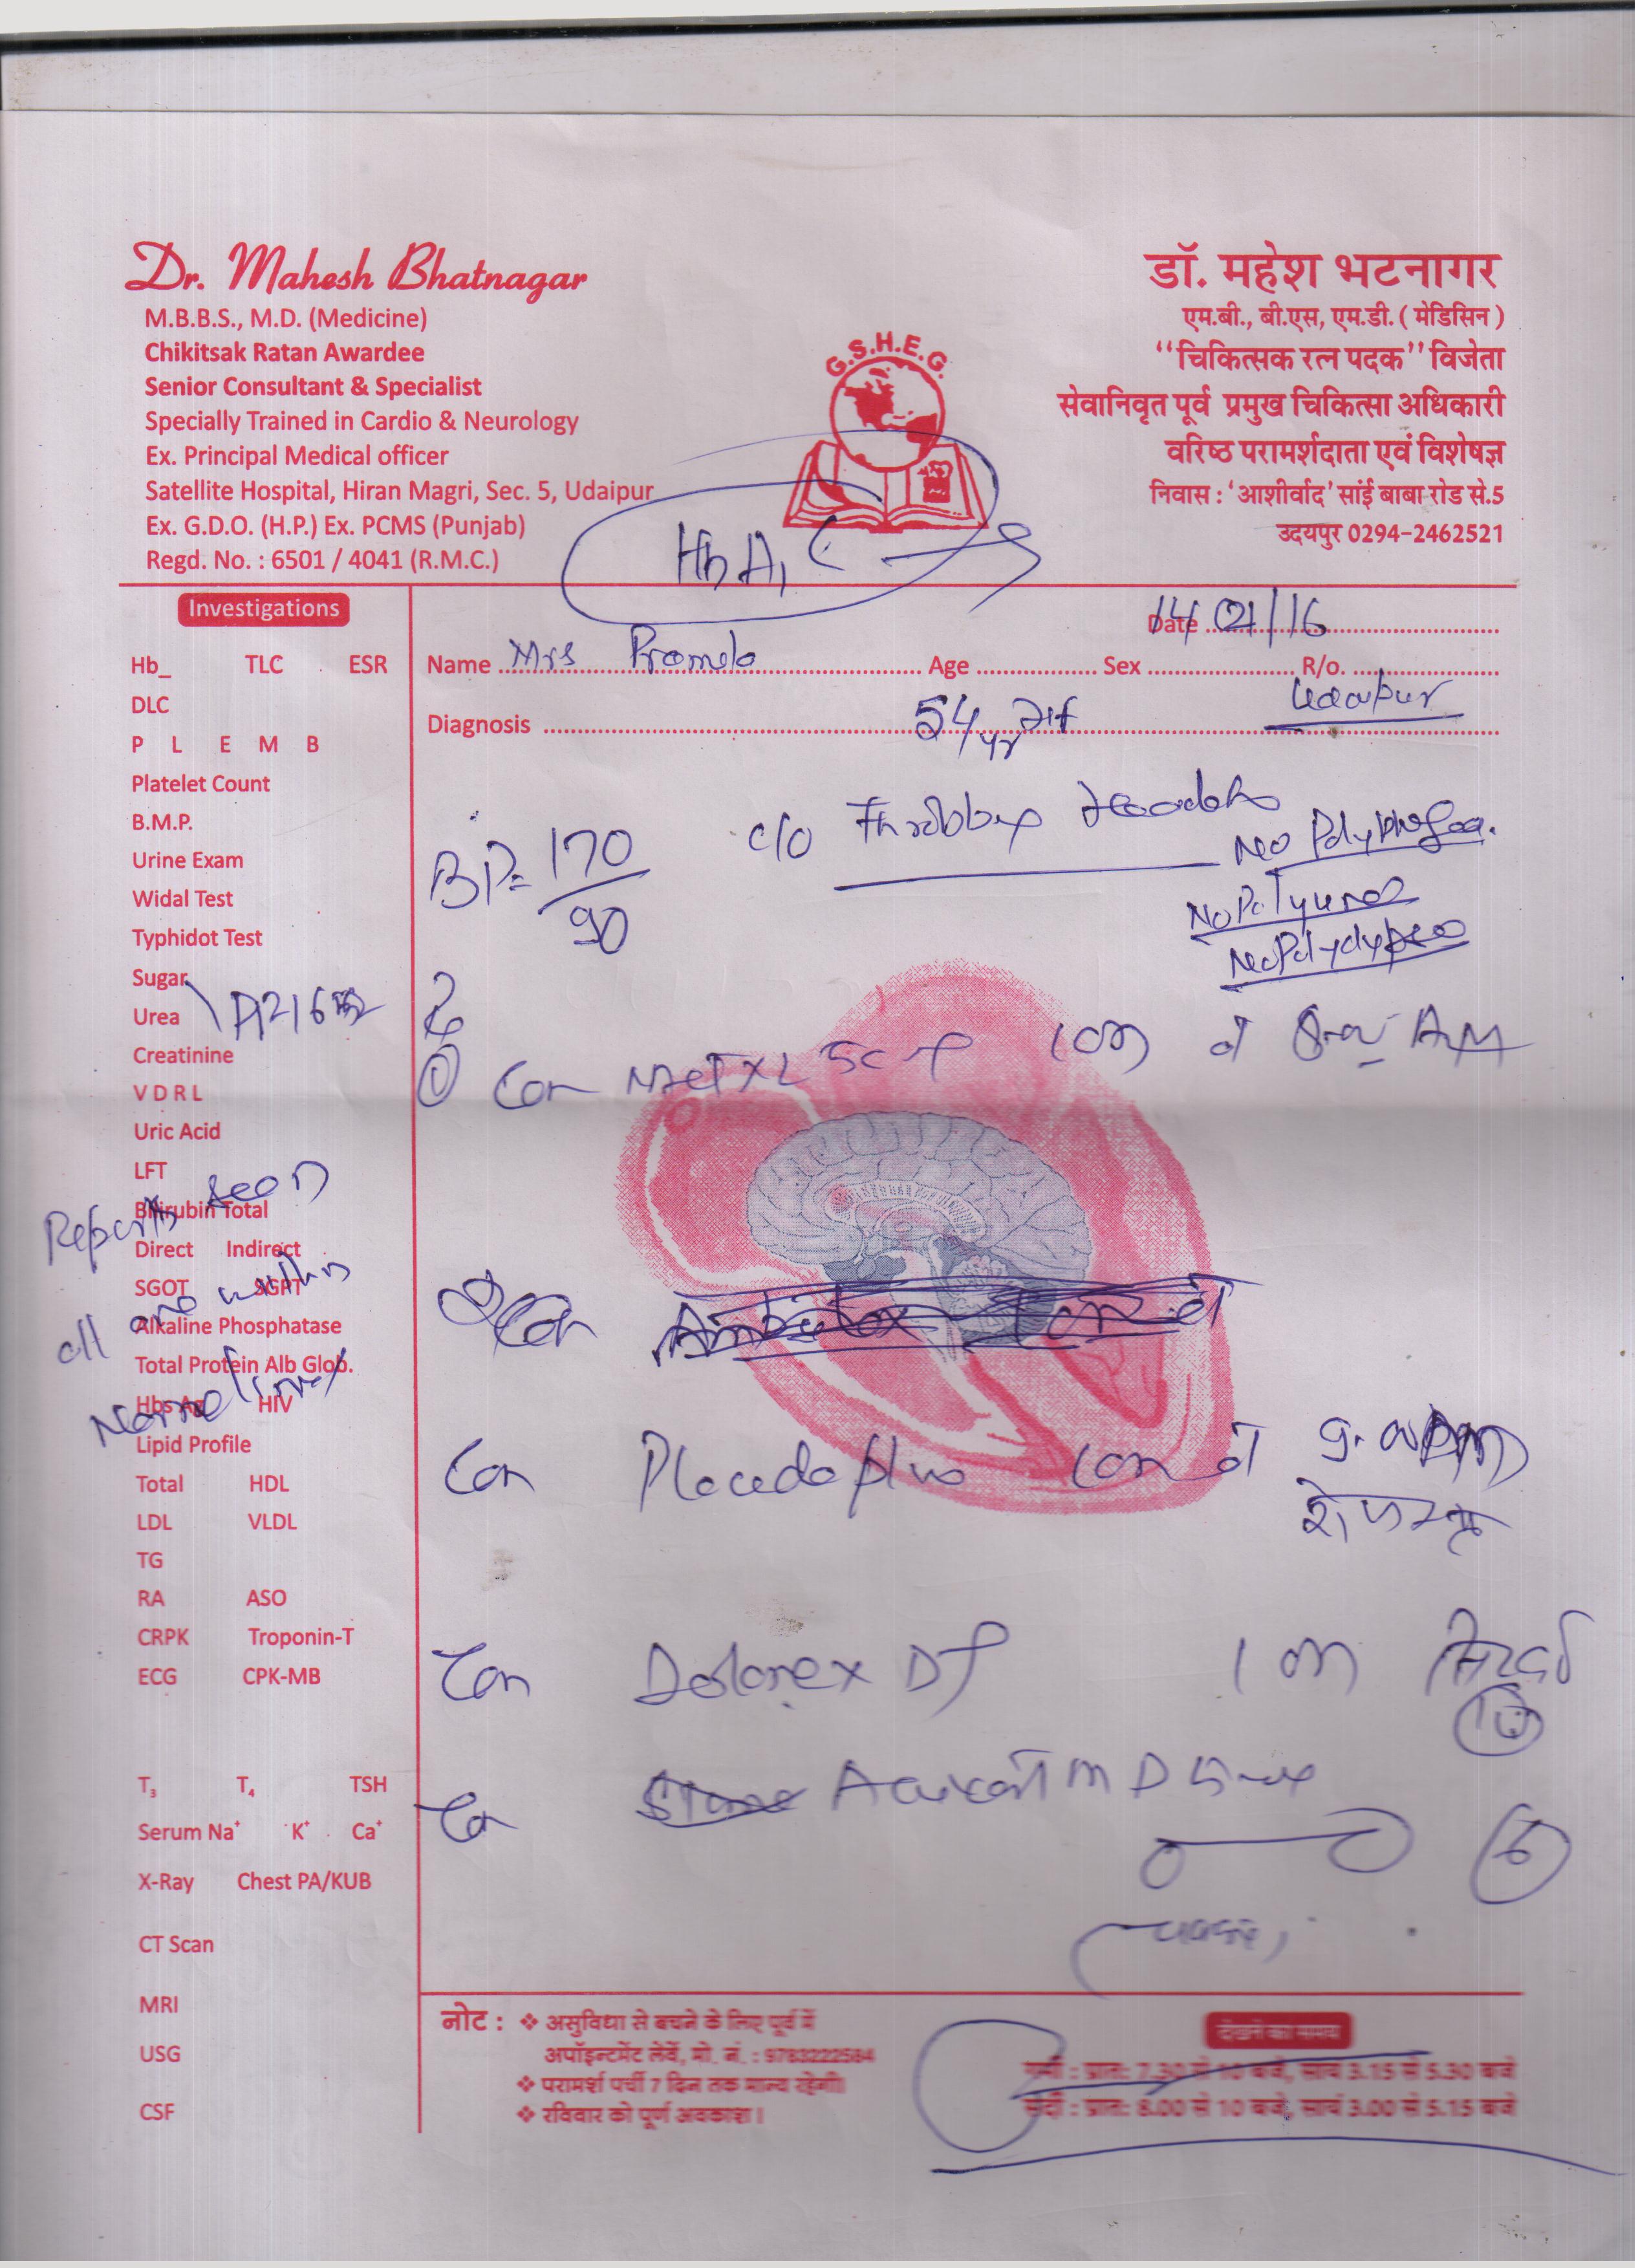 Dr. Mahesh Bhatnagar
M.B.B.S., M.D. (Medicine)
Chikitsak Ratan Awardee
Senior Consultant & Specialist
Specially Trained in Cardio & Neurology
Ex. Principal Medical officer
Satellite Hospital, Hiran Magri, Sec. 5, Udaipur
Ex. G.D.O. (H.P.) Ex. PCMS (Punjab)
Regd. No. : 6501 / 4041 (R.M.C.)
G.S.H.E.G.
डॉ. महेश भटनागर
एम.बी., बी.एस, एम.डी. ( मेडिसिन )
“चिकित्सक रत्न पदक” विजेता
सेवानिवृत पूर्व प्रमुख चिकित्सा अधिकारी
वरिष्ठ परामर्शदाता एवं विशेषज्ञ
निवास : ‘आशीर्वाद’ सांई बाबा रोड से.5
उदयपुर 0294-2462521
HbA1C
Investigations
Hb_ TLC ESR
DLC
P L E M B
Platelet Count
B.M.P.
Urine Exam
Widal Test
Typhidot Test
Sugar
Urea
Creatinine
V D R L
Uric Acid
LFT
Bilirubin Total
Direct Indirect
SGOT SGPT
Alkaline Phosphatase
Total Protein Alb Glob.
Hbs Ag HIV
Lipid Profile
Total HDL
LDL VLDL
TG
RA ASO
CRPK Troponin-T
ECG CPK-MB
T3 T4 TSH
Serum Na+ K+ Ca+
X-Ray Chest PA/KUB
CT Scan
MRI
USG
CSF
Reports seen
all are within
Normal
Date 14/01/16
Name Mrs Promela Age Sex R/o.
Udaipur
Diagnosis 54 yr
BP= 170/90
c/o Throbbing Headache
No Polyphagia.
No Polyurea
No Polydypsea
① Con Met XL 50 1 on AM
Con Placeda plus
Con Dolorex DT 1 on
M D
नोट : ❖ असुविधा से बचने के लिए पूर्व में
अपॉइन्टमेंट लेवें, मो. नं. : 9783222584
❖ परामर्श पर्ची 7 दिन तक मान्य रहेगी।
❖ रविवार को पूर्ण अवकाश।
देखने का समय
गर्मी : प्रातः 7.30 से 10 बजे, सायं 3.15 से 5.30 बजे
सर्दी : प्रातः 8.00 से 10 बजे, सायं 3.00 से 5.15 बजे